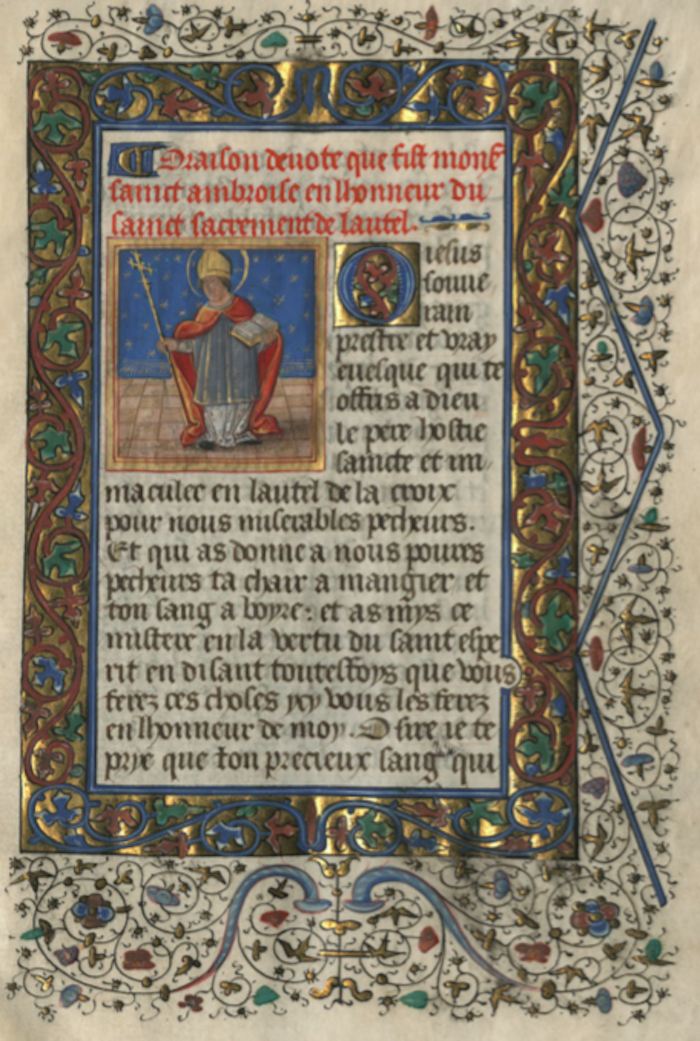 Oraison devote que fist mons
sainct ambroise en lhonneur du
sainct sacrement de lautel.
O iesus
souue
rain
prestre et vray
euesque qui te
offris a dieu
le pere hostie
saincte et im
maculee en lautel de la croix
pour nous miserables pecheurs.
Et qui as donne a nous poures
pecheurs ta chair a mangier et
ton sang a boyre: et as mys ce
mistere en la vertu du saint espe
rit en disant toutesfoys que vous
ferez ces choses ycy vous les ferez
en lhonneur de moy. O sire ie te
prye que ton precieux sang qui